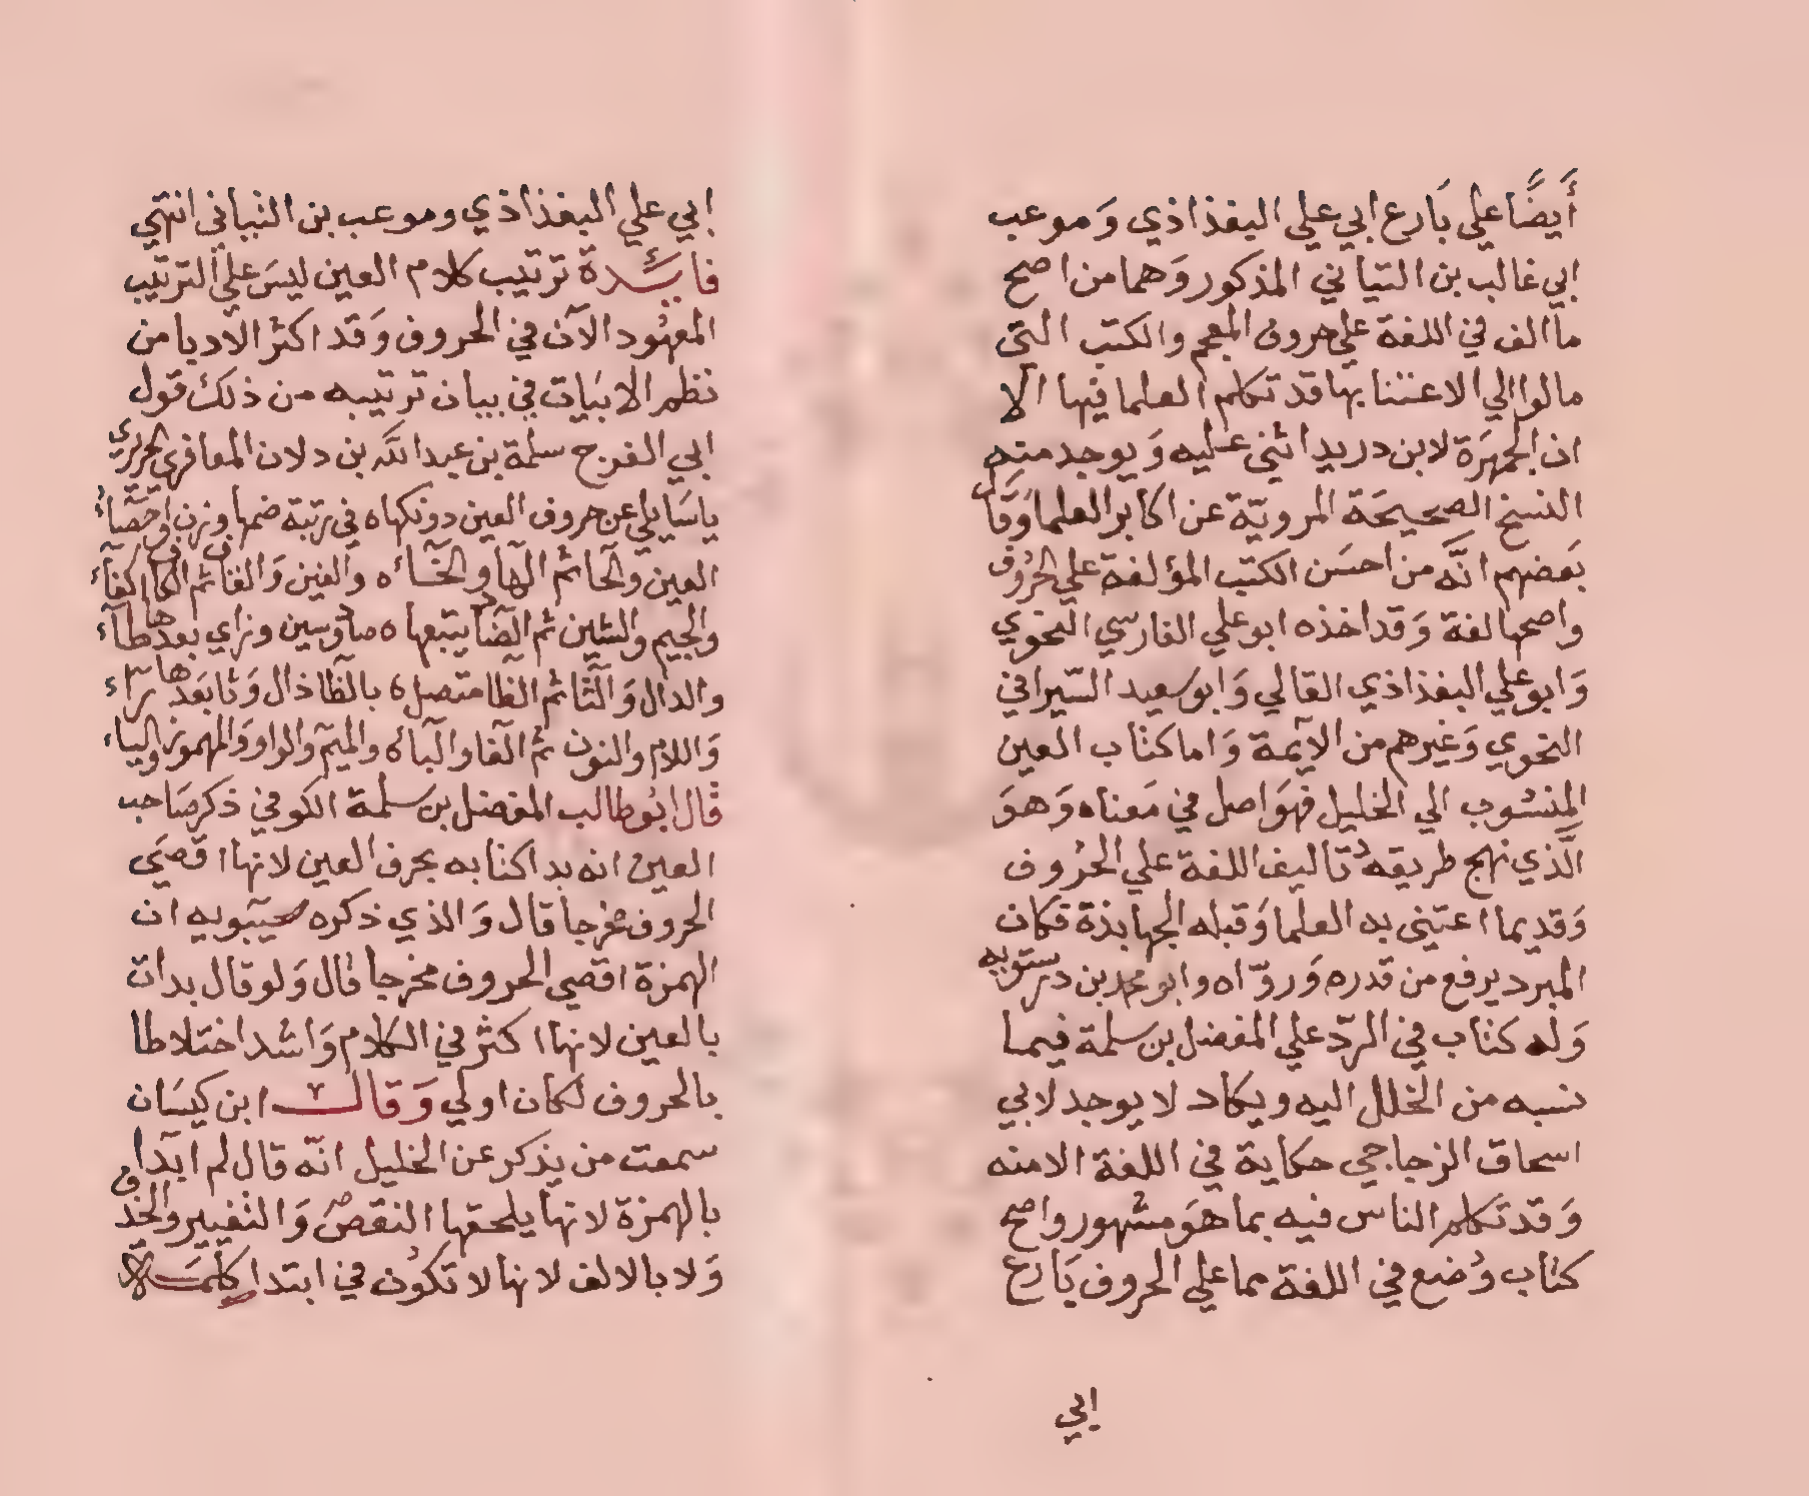 أَيضًا علي بَارع ابي علي البغذاذي وَموعب
ابي غالب بن التياني المذكور وَهما من اصح
ما الف في اللغة علي حروف المعجم والكتب التي
مالوا الي الاعتنا بها قد تكلم العلما فيها الا
ان الجمهَرة لابن دريد اثني عليه وَيوجد منه
النسخ الصحيحَة المرويّة عن اكابر العلما وَقال
بَعضهم انَّه من احسَن الكتب المؤلفة علي الحرُوف
واصحها لغة وَقد اخذه ابو علي الفارسي النحوي
وَابو علي البغذاذي القالي وَابو سعيد السّيرافي
النحوي وَغيرهم من الآيمة وَاما كتاب العين
المنسُوب الي الخليل فهوَ اصل في مَعناه وَهوَ
الَّذي نهج طريقه تاليف اللغة علي الحرُوف
وَقديما اعتني به العلما وَقبله الجهابذة فكان
المبرد يرفع من قدره وَروّاه وابو محمد بن درستويه
وَله كتاب في الردّ علي المفضل بن سلمة فيما
نسبه من الخلل اليه ويكاد لا يوجد لابي
اسحاق الزجاجي حكاية في اللغة الا منه
وَقد تكلم الناس فيه بما هوَ مشهور واصح
كتاب وُضع في اللغة مما علي الحروف بَارع
ابي
ابي علي البغذاذي وموعب بن التياني انتهي
فايدة ترتيب كلام العين ليسَ علي الترتيب
المعهُود الآن في الحروف وَقد اكثر الادبا من
نظم الابيَات في بيان ترتيبه من ذلك قول
ابي الفرج سلمة بن عبد الله بن دلان المعافري الحريري
ياسَايلي عن حروف العين دونكها ه في رتبة ضمها وزن واحصَاءُ
العين والحا ثم الها والخآء ه والغين وَالقاف ثم الكاف اكفآء
والجيم والشين ثم الضاد يتبعها ه صاد وسين وزاي بعدها طآء
والدال وَالتا ثم الظا متصل ه بالظا ذال وَثا بَعدها رآء
وَاللام والنون ثم الفا والبا ه والميم والواو وَالمهموز والياء
قال ابُو طالب المفضل بن سلمة الكوفي ذكر صَاحب
العين انه بدا كتابه بحرف العين لانها اقصَي
الحروف مخرجا قال وَالذي ذكره سيبويه ان
الهمزة اقصي الحروف مخرجا قال وَلو قال بدات
بالعين لانها اكثر في الكلام وَاشد اختلاطا
بالحروف لكان اولي وَقال ابن كيسَان
سمعت من يذكر عن الخليل انّه قال لم ابدا
بالهمزة لانها يلحقها النقص وَالتغيير والحذف
وَلا بالالف لانها لا تكوُن في ابتدا كلمَة